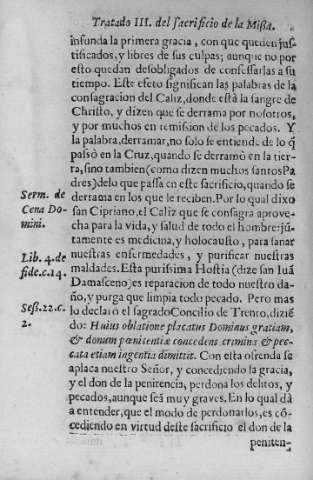 Tratado III. del sacrificio de la Missa.
infunda la primera gracia, con que queden jus-
tificados, y libres de sus culpas; aunque no por
esto quedan desobligados de confessarlas a su
tiempo. Este efeto significan las palabras de la
consagracion del Caliz, donde està la sangre de
Christo, y dizen que se derrama por nosotros,
y por muchos en remission de los pecados. Y
la palabra, derramar, no solo se entiende de lo q̃
passò en la Cruz, quando se derramò en la tier-
ra, sino tambien (como dizen muchos santos Pa
dres) de lo que passa en este sacrificio, quando se
Serm. de
Cena Do-
mini.
derrama en los que le reciben. Por lo qual dixo
san Cipriano, el Caliz que se consagra aprove-
cha para la vida, y salud de todo el hombre, jũ-
tamente es medicina, y holocausto, para sanar
Lib. 4. de
fide. c. 14.
nuestras enfermedades, y purificar nuestras
maldades. Esta purissima Hostia (dize san Iuã
Damasceno) es reparacion de todo nuestro da-
ño, y purga que limpia todo pecado. Pero mas
Sess. 22. c.
2.
lo declarò el sagrado Concilio de Trento, diziẽ
do: Huius oblatione placatus Dominus gratiam,
& donum pœnitentiæ concedens crimina & pec-
cata etiam ingentia dimittit. Con esta ofrenda se
aplaca nuestro Señor, y concediendo la gracia,
y el don de la penitencia, perdona los delitos, y
pecados, aunque seã muy graves. En lo qual dà
a entender, que el modo de perdonarlos, es cõ-
cediendo en virtud deste sacrificio el don de la
peniten-